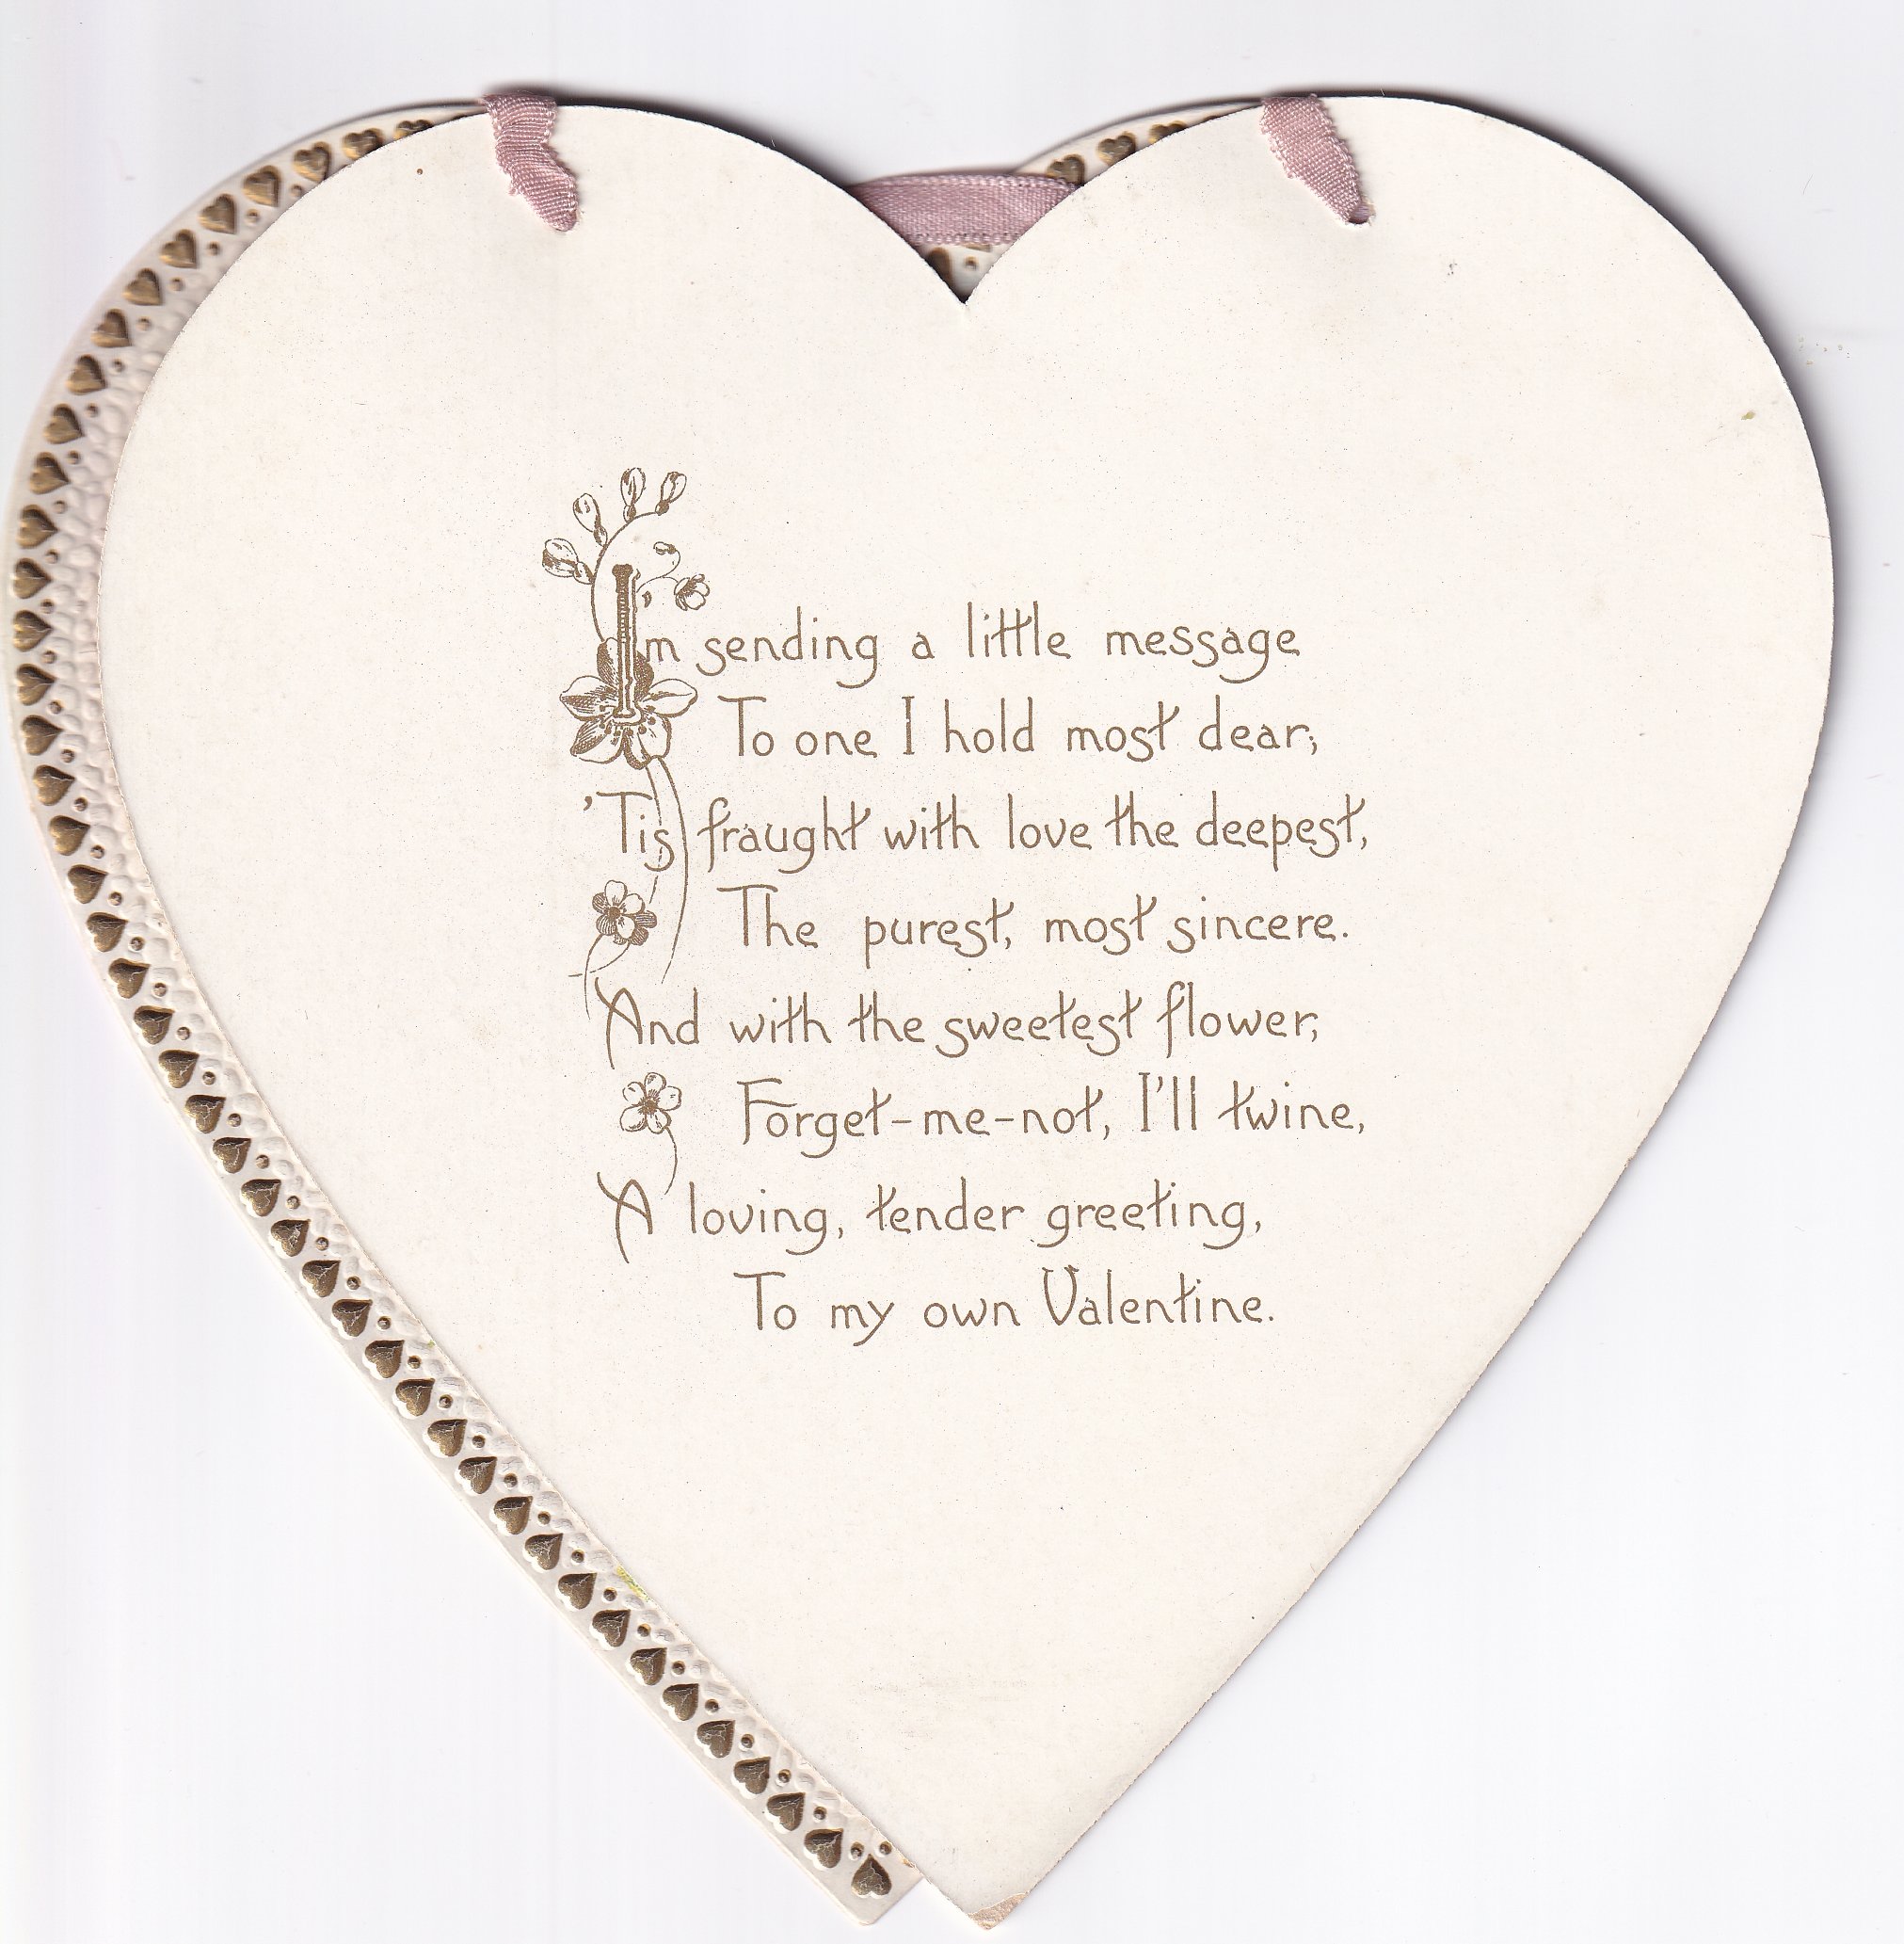 I'm sending a little message
To one I hold most dear;
'Tis fraught with love the deepest,
The purest, most sincere.
And with the sweetest flower,
Forget-me-not, I'll twine,
A loving, tender greeting,
To my own Valentine.